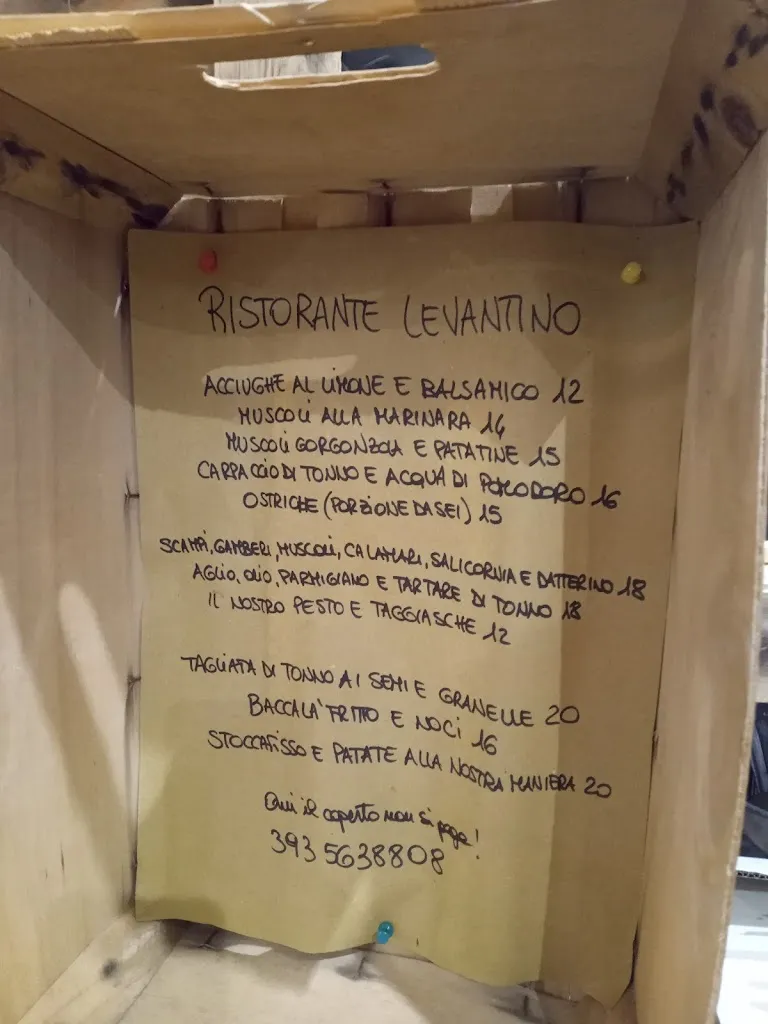 RISTORANTE LEVANTINO
ACCIUGHE AL LIMONE E BALSAMICO 12
MUSCOLI ALLA MARINARA 14
MUSCOLI GORGONZOLA E PATATINE 15
CARPACCIO DI TONNO E ACQUA DI POMODORO 16
OSTRICHE (PORZIONE DA SEI) 15
SCAMPI, GAMBERI, MUSCOLI, CALAMARI, SALICORNIA E DATTERINO 18
AGLIO, OLIO, PARMIGIANO E TARTARE DI TONNO 18
IL NOSTRO PESTO E TAGGIASCHE 12
TAGLIATA DI TONNO AI SEMI E GRANELLE 20
BACCALA' FRITTO E NOCI 16
STOCCAFISSO E PATATE ALLA NOSTRA MANIERA 20
Qui il coperto non si paga!
393 5638808